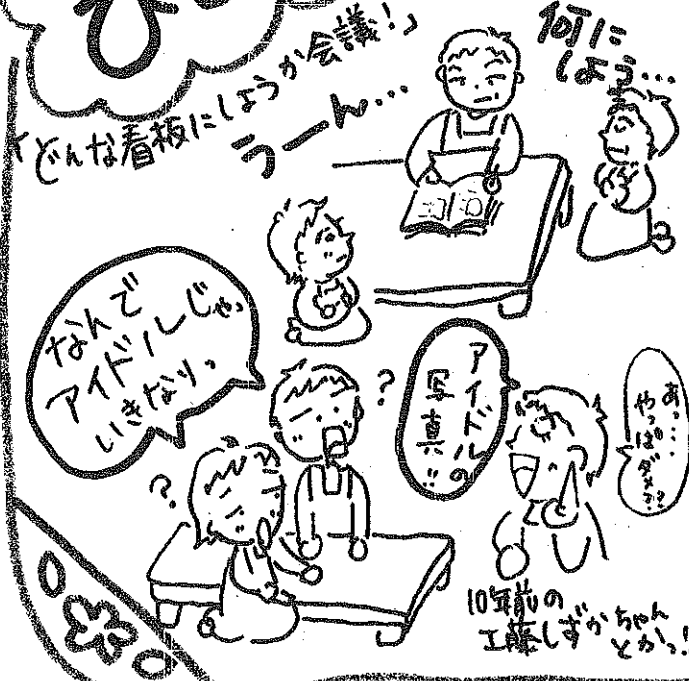 「どんな看板にしようか会議!」
うーん…
何に
しよう…
なんで
アイドルじゃ、
いきなり。
?
?
アイドルの
写真!!
あっ…
やっぱダメ??
10年前の
工藤しずかちゃん
とかっ!